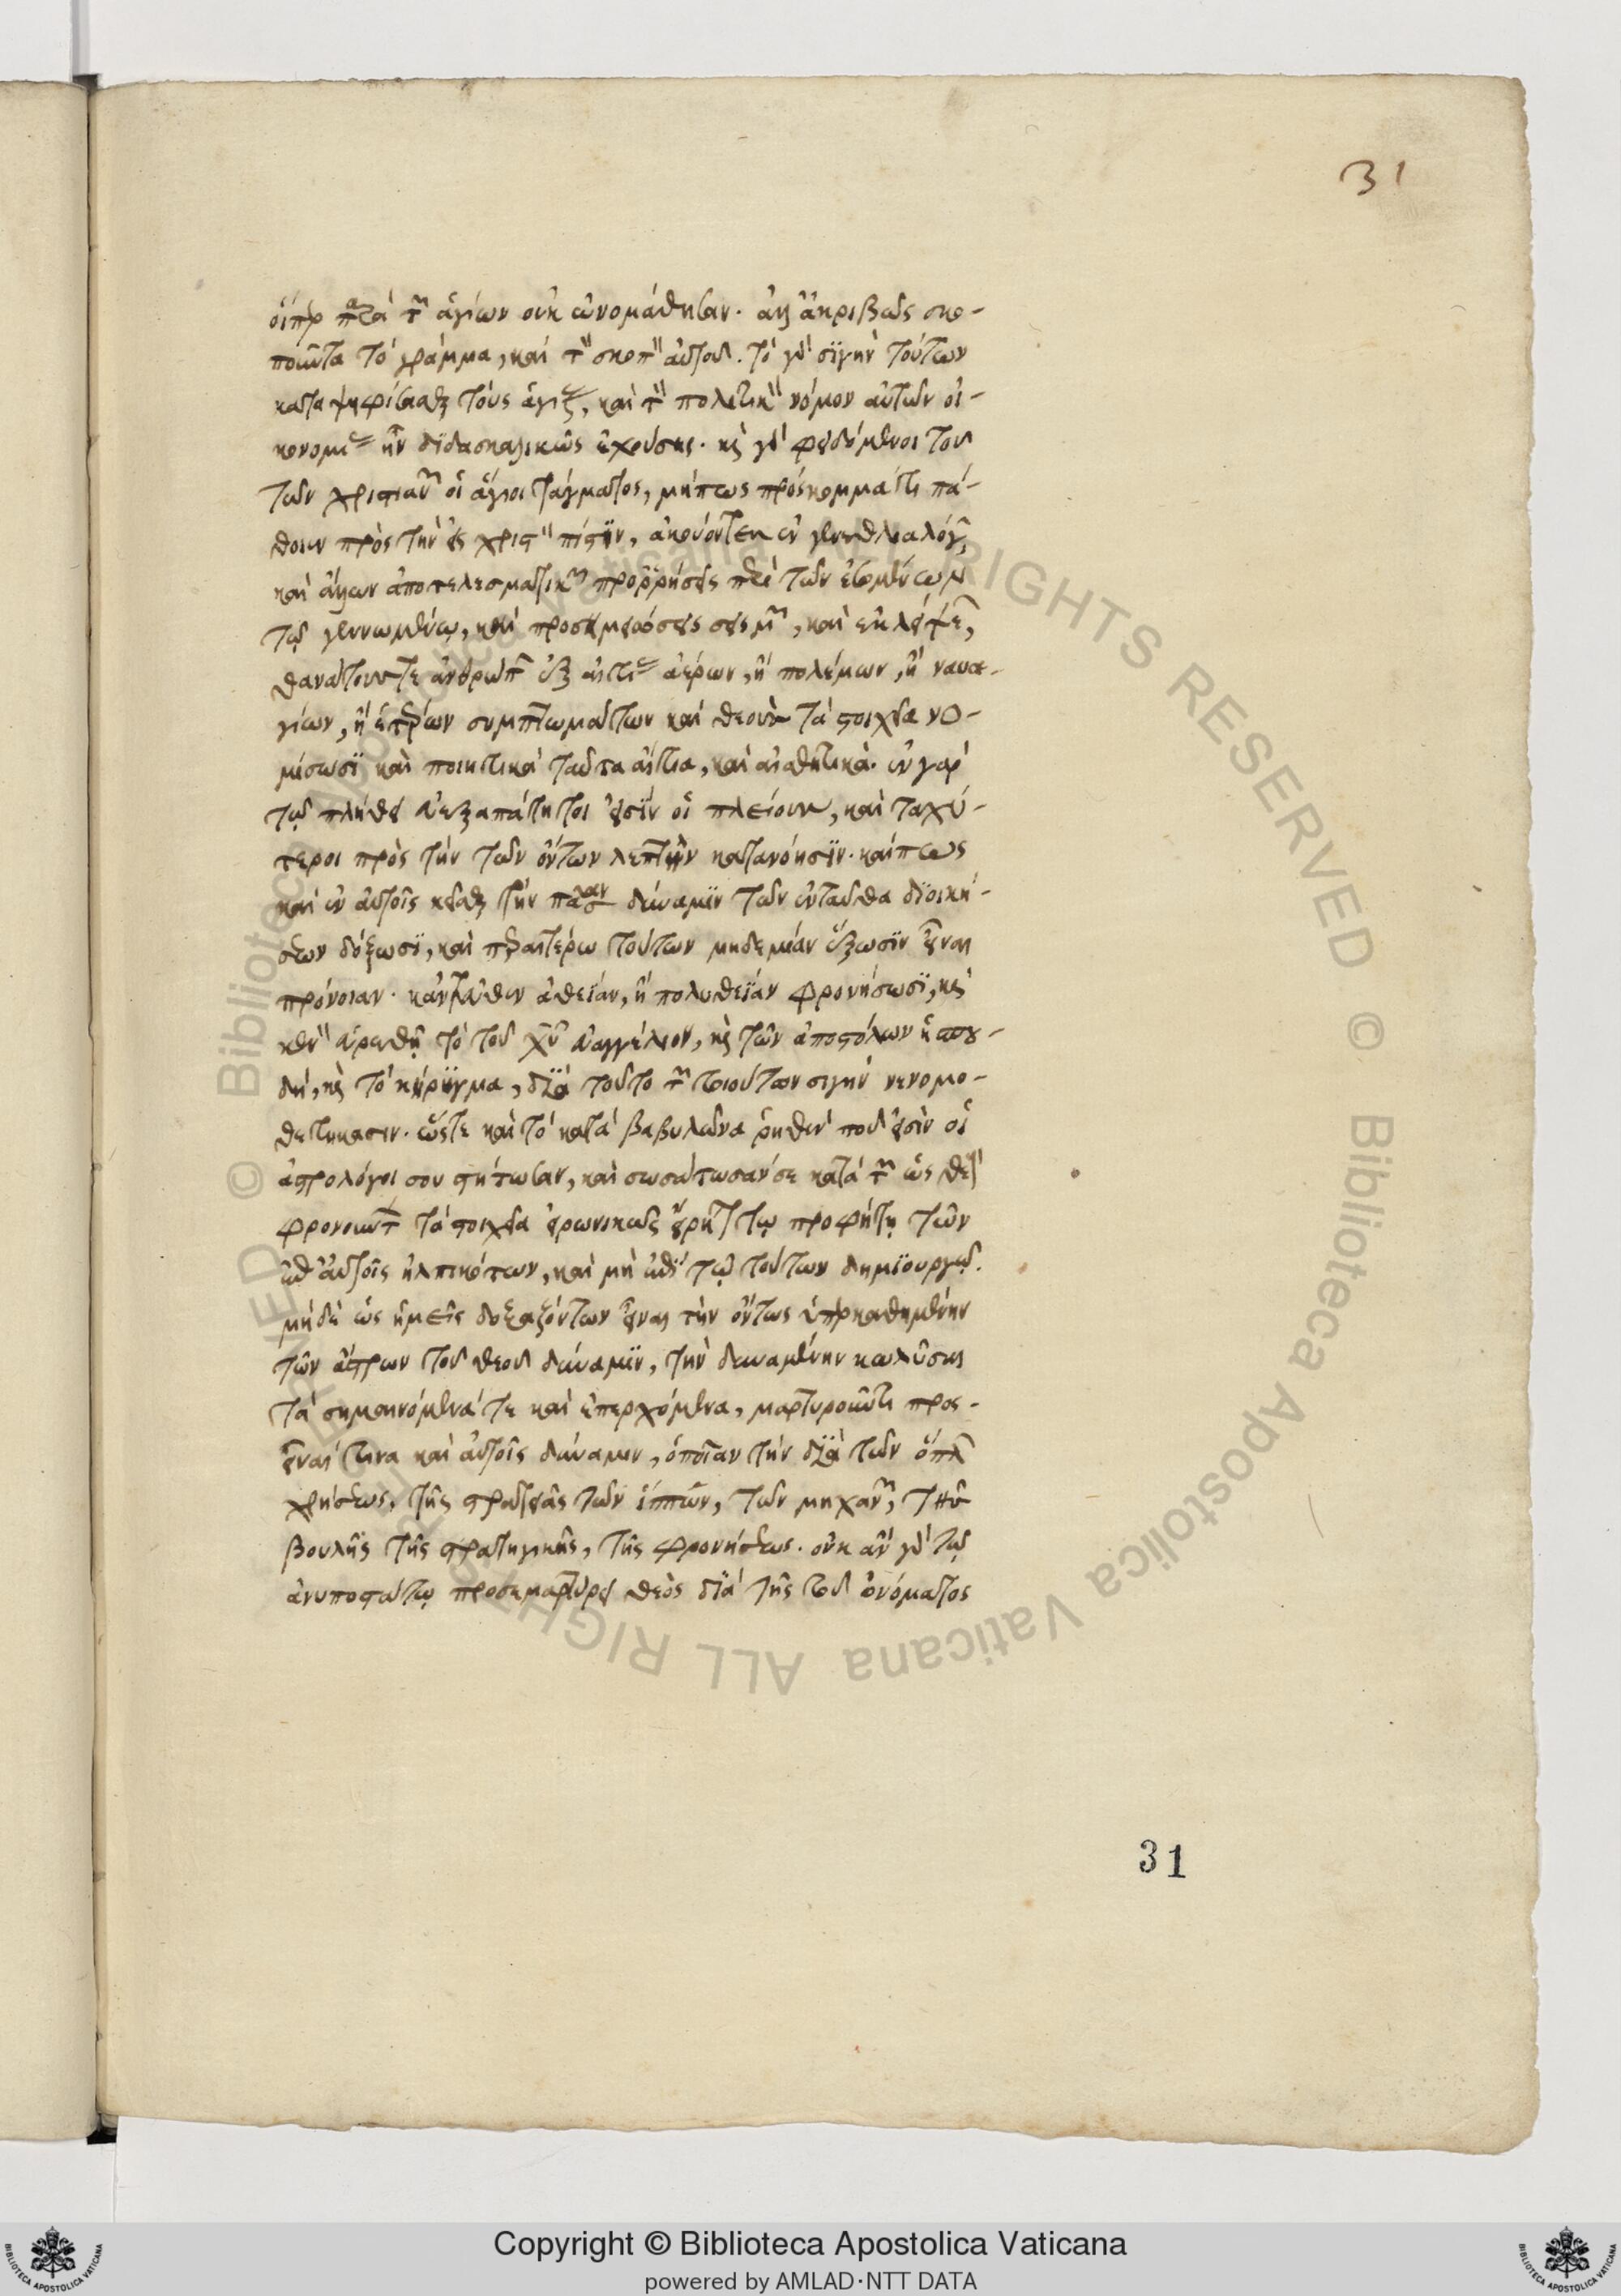 31
οἵπερ παρὰ τῶν ἁγίων οὐκ ὠνομάσθησαν. ἀλλ' ἀκριβῶς σκο-
ποῦντα τὸ γράμμα, καὶ τὸν σκοπὸν αὐτοῦ. τὸ γὰρ σϊγὴν τούτων
καταψηφίσασθαι τοὺς ἁγίους, καὶ τὸν πολιτικὸν νόμον αὐτῶν οἰ-
κονομίας ἦν δϊδασκαλικῶς ἐχούσης. καὶ γὰρ φειδόμενοι τοῦ
τῶν χριστιανῶν οἱ ἅγιοι τάγματος, μήπως πρόσκομμά τι πά-
θοιεν πρὸς τὴν εἰς χριστὸν πίστϊν, ἀκούοντες ἐν γενεθλιαλόγοις
καὶ ἄλλων ἀποτελεσματικῶν προρρήσεις περὶ τῶν ἐσομένων
τῷ γεννωμένῳ, καὶ προσημειώσεις σεισμῶν, καὶ ἐκλείψεις,
θανάτους τε ἀνθρώπων ἐξ αἰτίας ἀέρων, ἢ πολέμων, ἢ ναυα-
γίων, ἢ ἑτέρων συμπτωμάτων καὶ θεοὺς τὰ στοιχεῖα νο-
μίσωσϊ καὶ ποιητικὰ ταῦτα αἴτια, καὶ αἰσθητικά. ἐν γὰρ
τῷ πλήθει εὐεξαπάτητοι εἰσϊν οἱ πλείους, καὶ ταχύ-
τεροι πρὸς τὴν τῶν ὄντων λεπτὴν κατανόησϊν. καίπως
καὶ ἐν αὐτοῖς κεῖσθαι τὴν πᾶσαν δύναμϊν τῶν ἐνταῦθα δϊοική-
σεων δόξωσϊ, καὶ περαιτέρω τούτων μηδεμίαν ἕξωσϊν εἶναι
πρόνοιαν. κἀντεῦθεν ἀθεΐαν, ἢ πολυθεΐαν φρονήσωσϊ, καὶ
κενὸν εὑρεθῇ τὸ τοῦ χῦ εὐαγγέλιον, καὶ τῶν ἀποστόλων ἡ σπου-
δή, καὶ τὸ κήρϋγμα, δϊὰ τοῦτο τῶν τοιούτων σιγὴν νενομο-
θετήκασιν. ὥστε καὶ τὸ κατὰ βαβυλῶνα ῥηθὲν ποῦ εἰσὶν οἱ
ἀστρολόγοι σου στήτωσαν, καὶ σωσάτωσάν σε κατὰ τῶν ὡς θεοὺς
φρονούντων τὰ στοιχεῖα εἰρωνικῶς εἴρηται τῷ προφήτῃ τῶν
ἐπ' αὐτοῖς ἠλπικότων, καὶ μὴ ἐπὶ τῷ τούτων δημϊουργῷ.
μηδὲ ὡς ἡμεῖς δοξαζόντων εἶναι τὴν ὄντως ὑπερκαθημένην
τῶν ἄστρων τοῦ θεοῦ δύναμϊν, τὴν δυναμένην κωλῦσαι
τὰ σημαινόμενά τε καὶ ἐπερχόμενα, μαρτυροῦντι προς-
εῖναί τινα καὶ αὐτοῖς δύναμιν, ὁποίαν τὴν δϊὰ τῶν ὅπλων
χρήσεως, τῆς στρατειᾶς τῶν ἵππων, τῶν μηχανῶν, τῆς
βουλῆς τῆς στρατηγικῆς, τῆς φρονήσεως. οὐκ ἂν γὰρ τῷ
ἀνυποστάτῳ προσεμαρτύρει θεὸς δϊὰ τῆς τοῦ ὀνόματος
31
© Biblioteca Apostolica Vaticana ALL RIGHTS RESERVED © Biblioteca Apostolica Vaticana ALL RIGHTS RESERVED
Copyright © Biblioteca Apostolica Vaticana
powered by AMLAD·NTT DATA
BIBLIOTECA APOSTOLICA VATICANA
BIBLIOTECA APOSTOLICA VATICANA